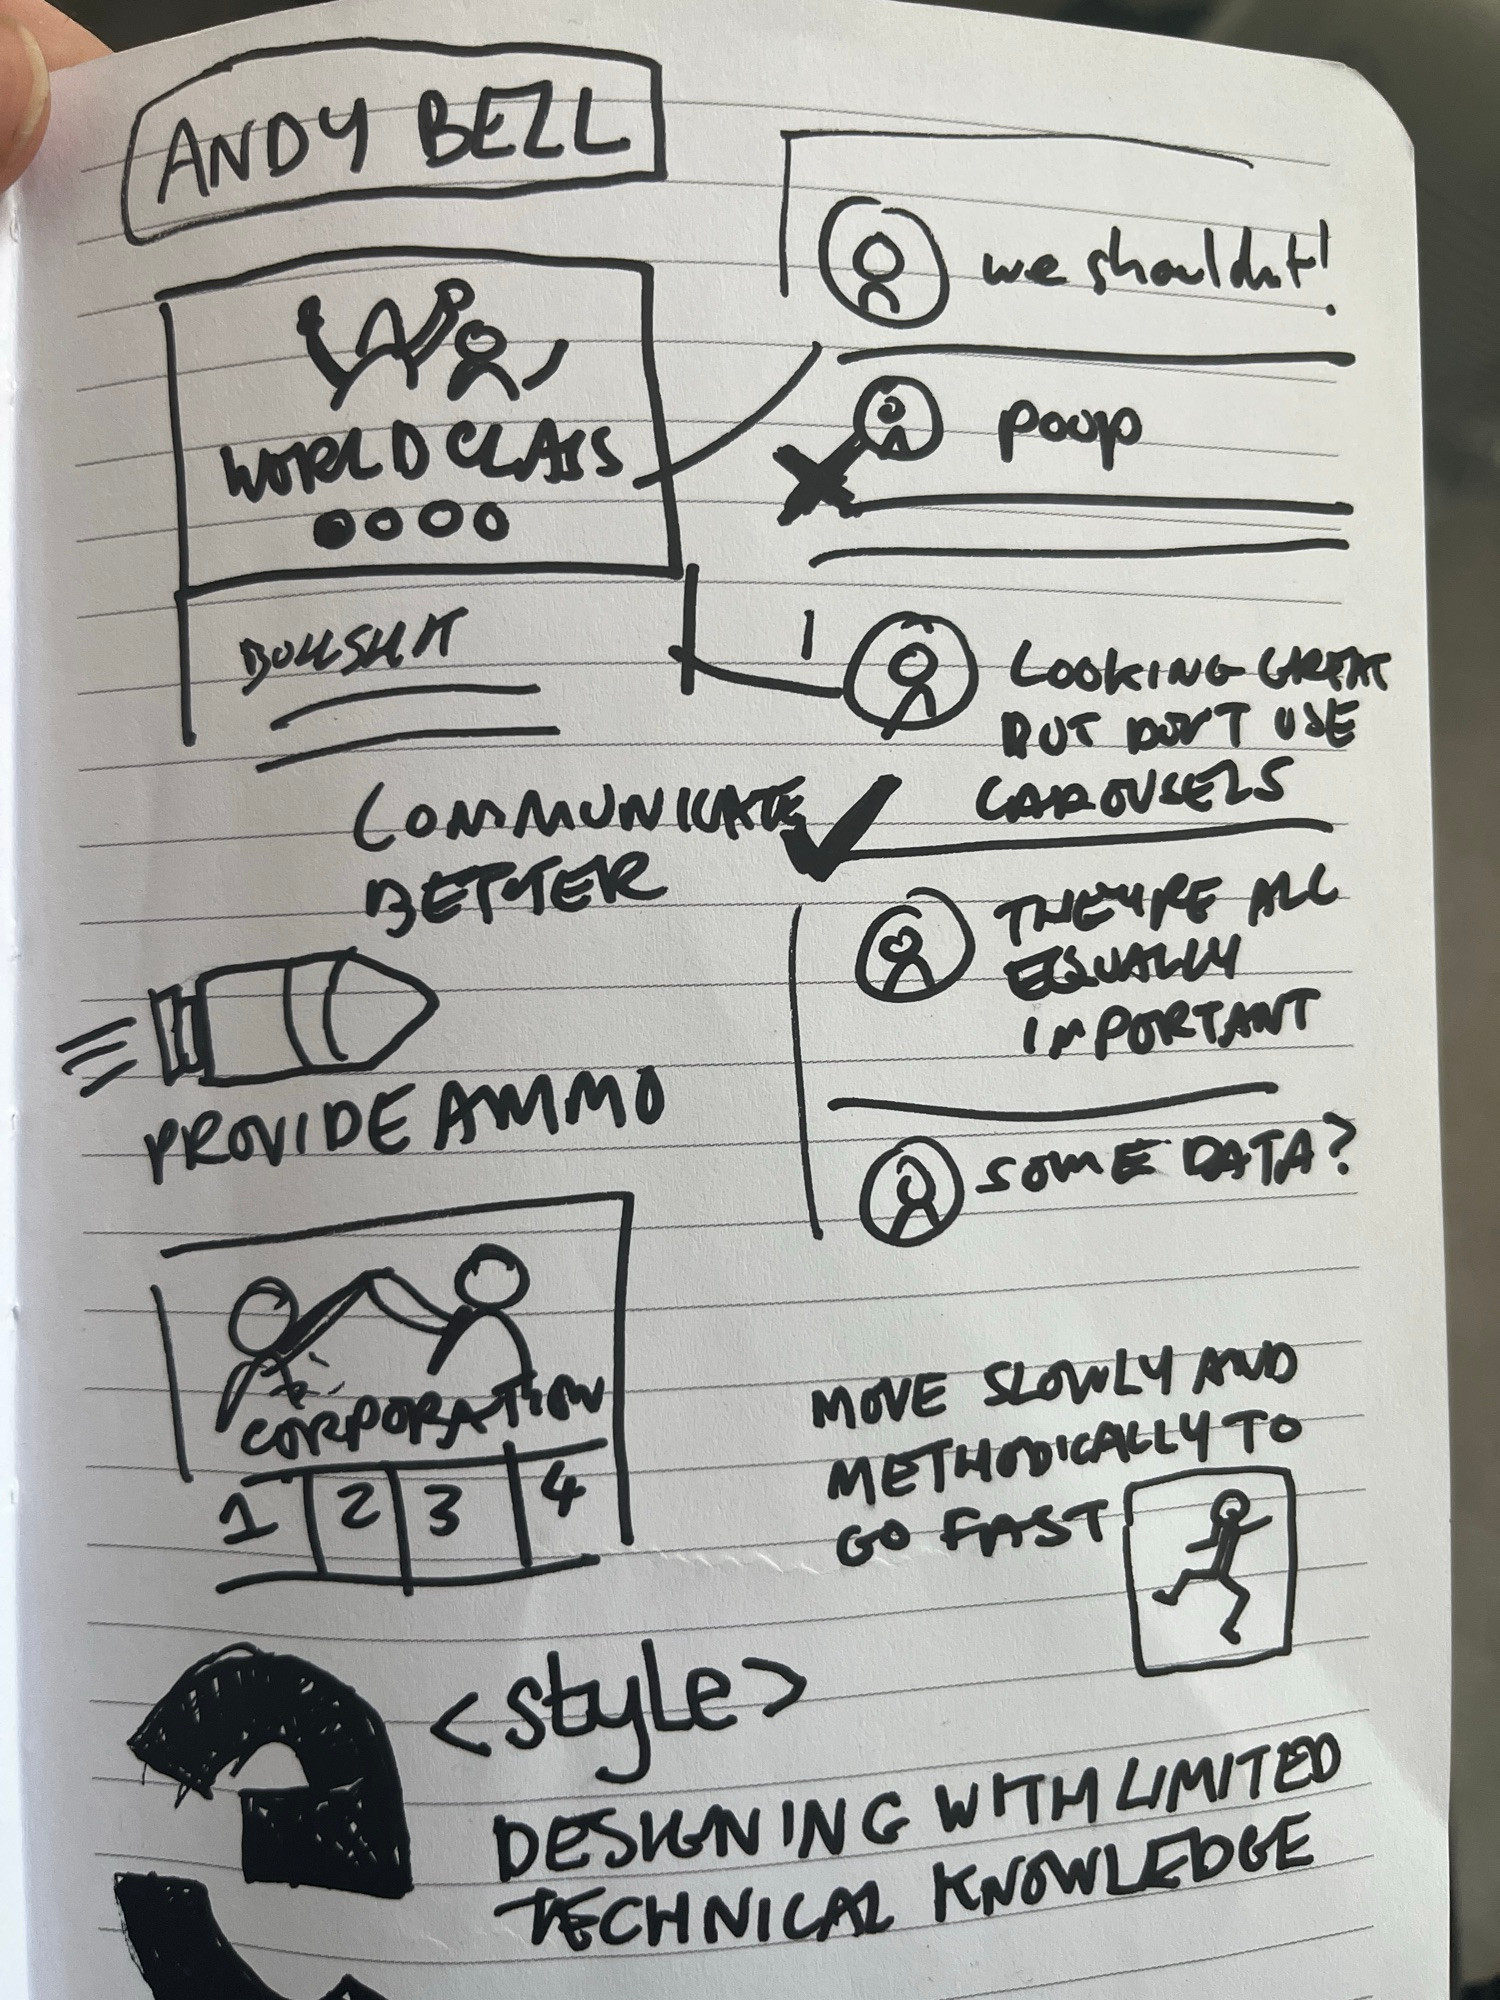 ANDY BELL
WORLD CLASS
BULLSHIT
we shouldn't!
poop
LOOKING GREAT
BUT DON'T USE
CAROUSELS
THEY'RE ALL
EQUALLY
IMPORTANT
SOME DATA?
COMMUNICATE
BETTER
PROVIDE AMMO
CORPORATION
1 2 3 4
MOVE SLOWLY AND
METHODICALLY TO
GO FAST
<style>
DESIGNING WITH LIMITED
TECHNICAL KNOWLEDGE